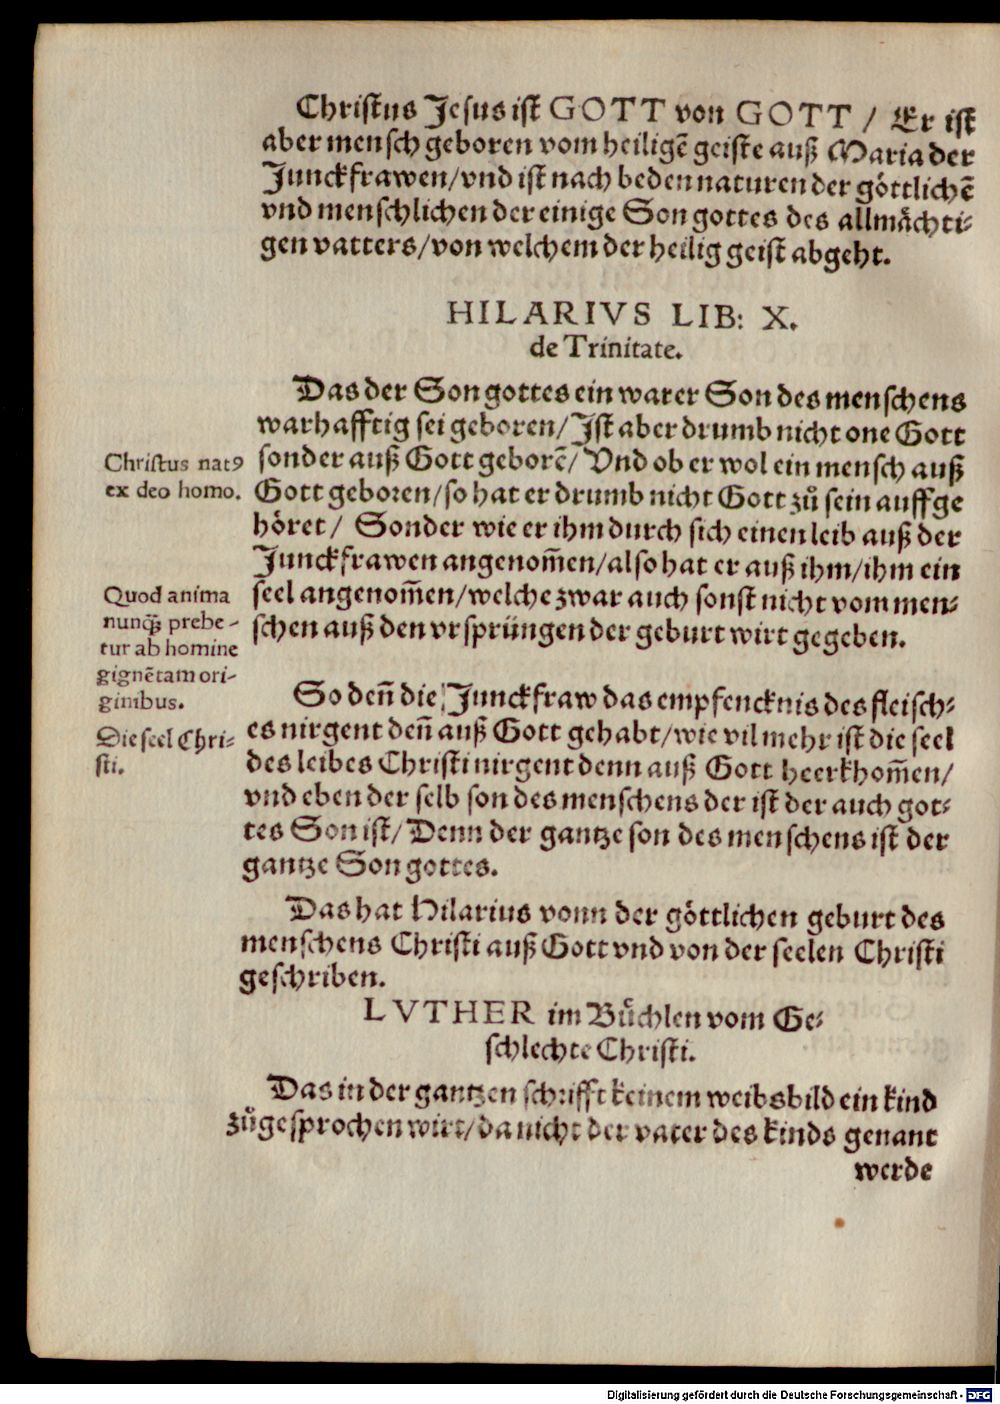 Christus Jesus ist GOTT von GOTT / Er ist
aber mensch geboren vom heiligẽ geiste auß Maria der
Junckfrawen/vnd ist nach beden naturen der göttlichẽ
vnd menschlichen der einige Son gottes des allmåchti-
gen vatters/von welchem der heilig geist abgeht.
HILARIVS LIB: X.
de Trinitate.
Das der Son gottes ein warer Son des menschens
warhafftig sei geboren/Ist aber drumb nicht one Gott
sonder auß Gott geborẽ/Vnd ob er wol ein mensch auß
Gott geboren/so hat er drumb nicht Gott zů sein auffge
höret/ Sonder wie er ihm durch sich einen leib auß der
Junckfrawen angenom̃en/also hat er auß ihm/ihm ein
seel angenom̃en/welche zwar auch sonst nicht vom men-
schen auß den vrsprüngen der geburt wirt gegeben.
Christus natꝰ
ex deo homo.
Quod anima
nunqꝫ prebe-
tur ab homine
gignẽtam ori-
ginibus.
Die seel Chri-
sti.
So deñ die Junckfraw das empfencknis des fleisch-
es nirgent deñ auß Gott gehabt/wie vil mehr ist die seel
des leibes Christi nirgent denn auß Gott heerkhom̃en/
vnd eben der selb son des menschens der ist der auch got-
tes Son ist/Denn der gantze son des menschens ist der
gantze Son gottes.
Das hat Hilarius vonn der göttlichen geburt des
menschens Christi auß Gott vnd von der seelen Christi
geschriben.
LVTHER im Bůchlen vom Ge-
schlechte Christi.
Das in der gantzen schrifft keinem weibsbild ein kind
zůgesprochen wirt/da nicht der vater des kinds genant
werde
Digitalisierung gefördert durch die Deutsche Forschungsgemeinschaft - DFG